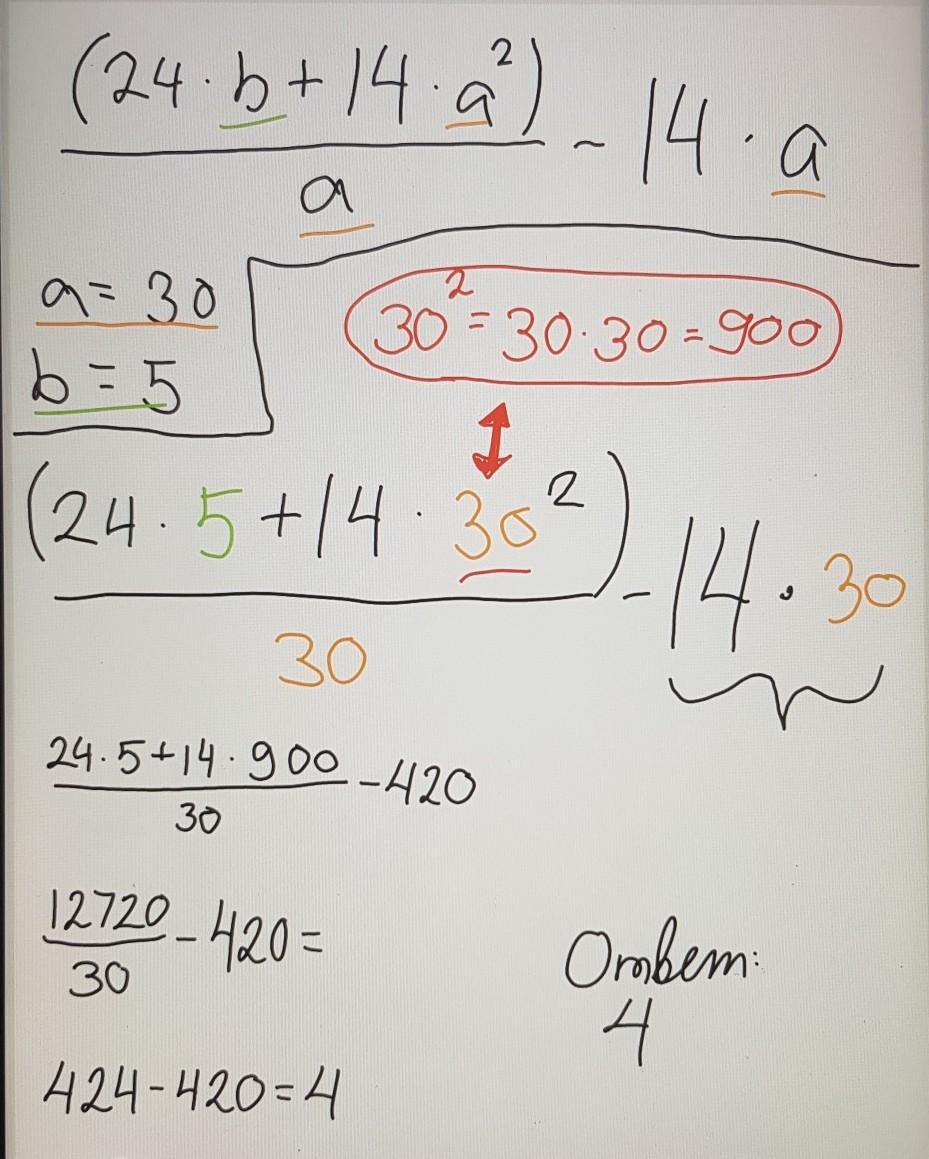 (24·b+14·a²)/a - 14·a
a=30
b=5
30²=30·30=900
(24·5+14·30²)/30 - 14·30
24·5+14·900/30 - 420
12720/30 - 420=
424-420=4
Ответ:
4